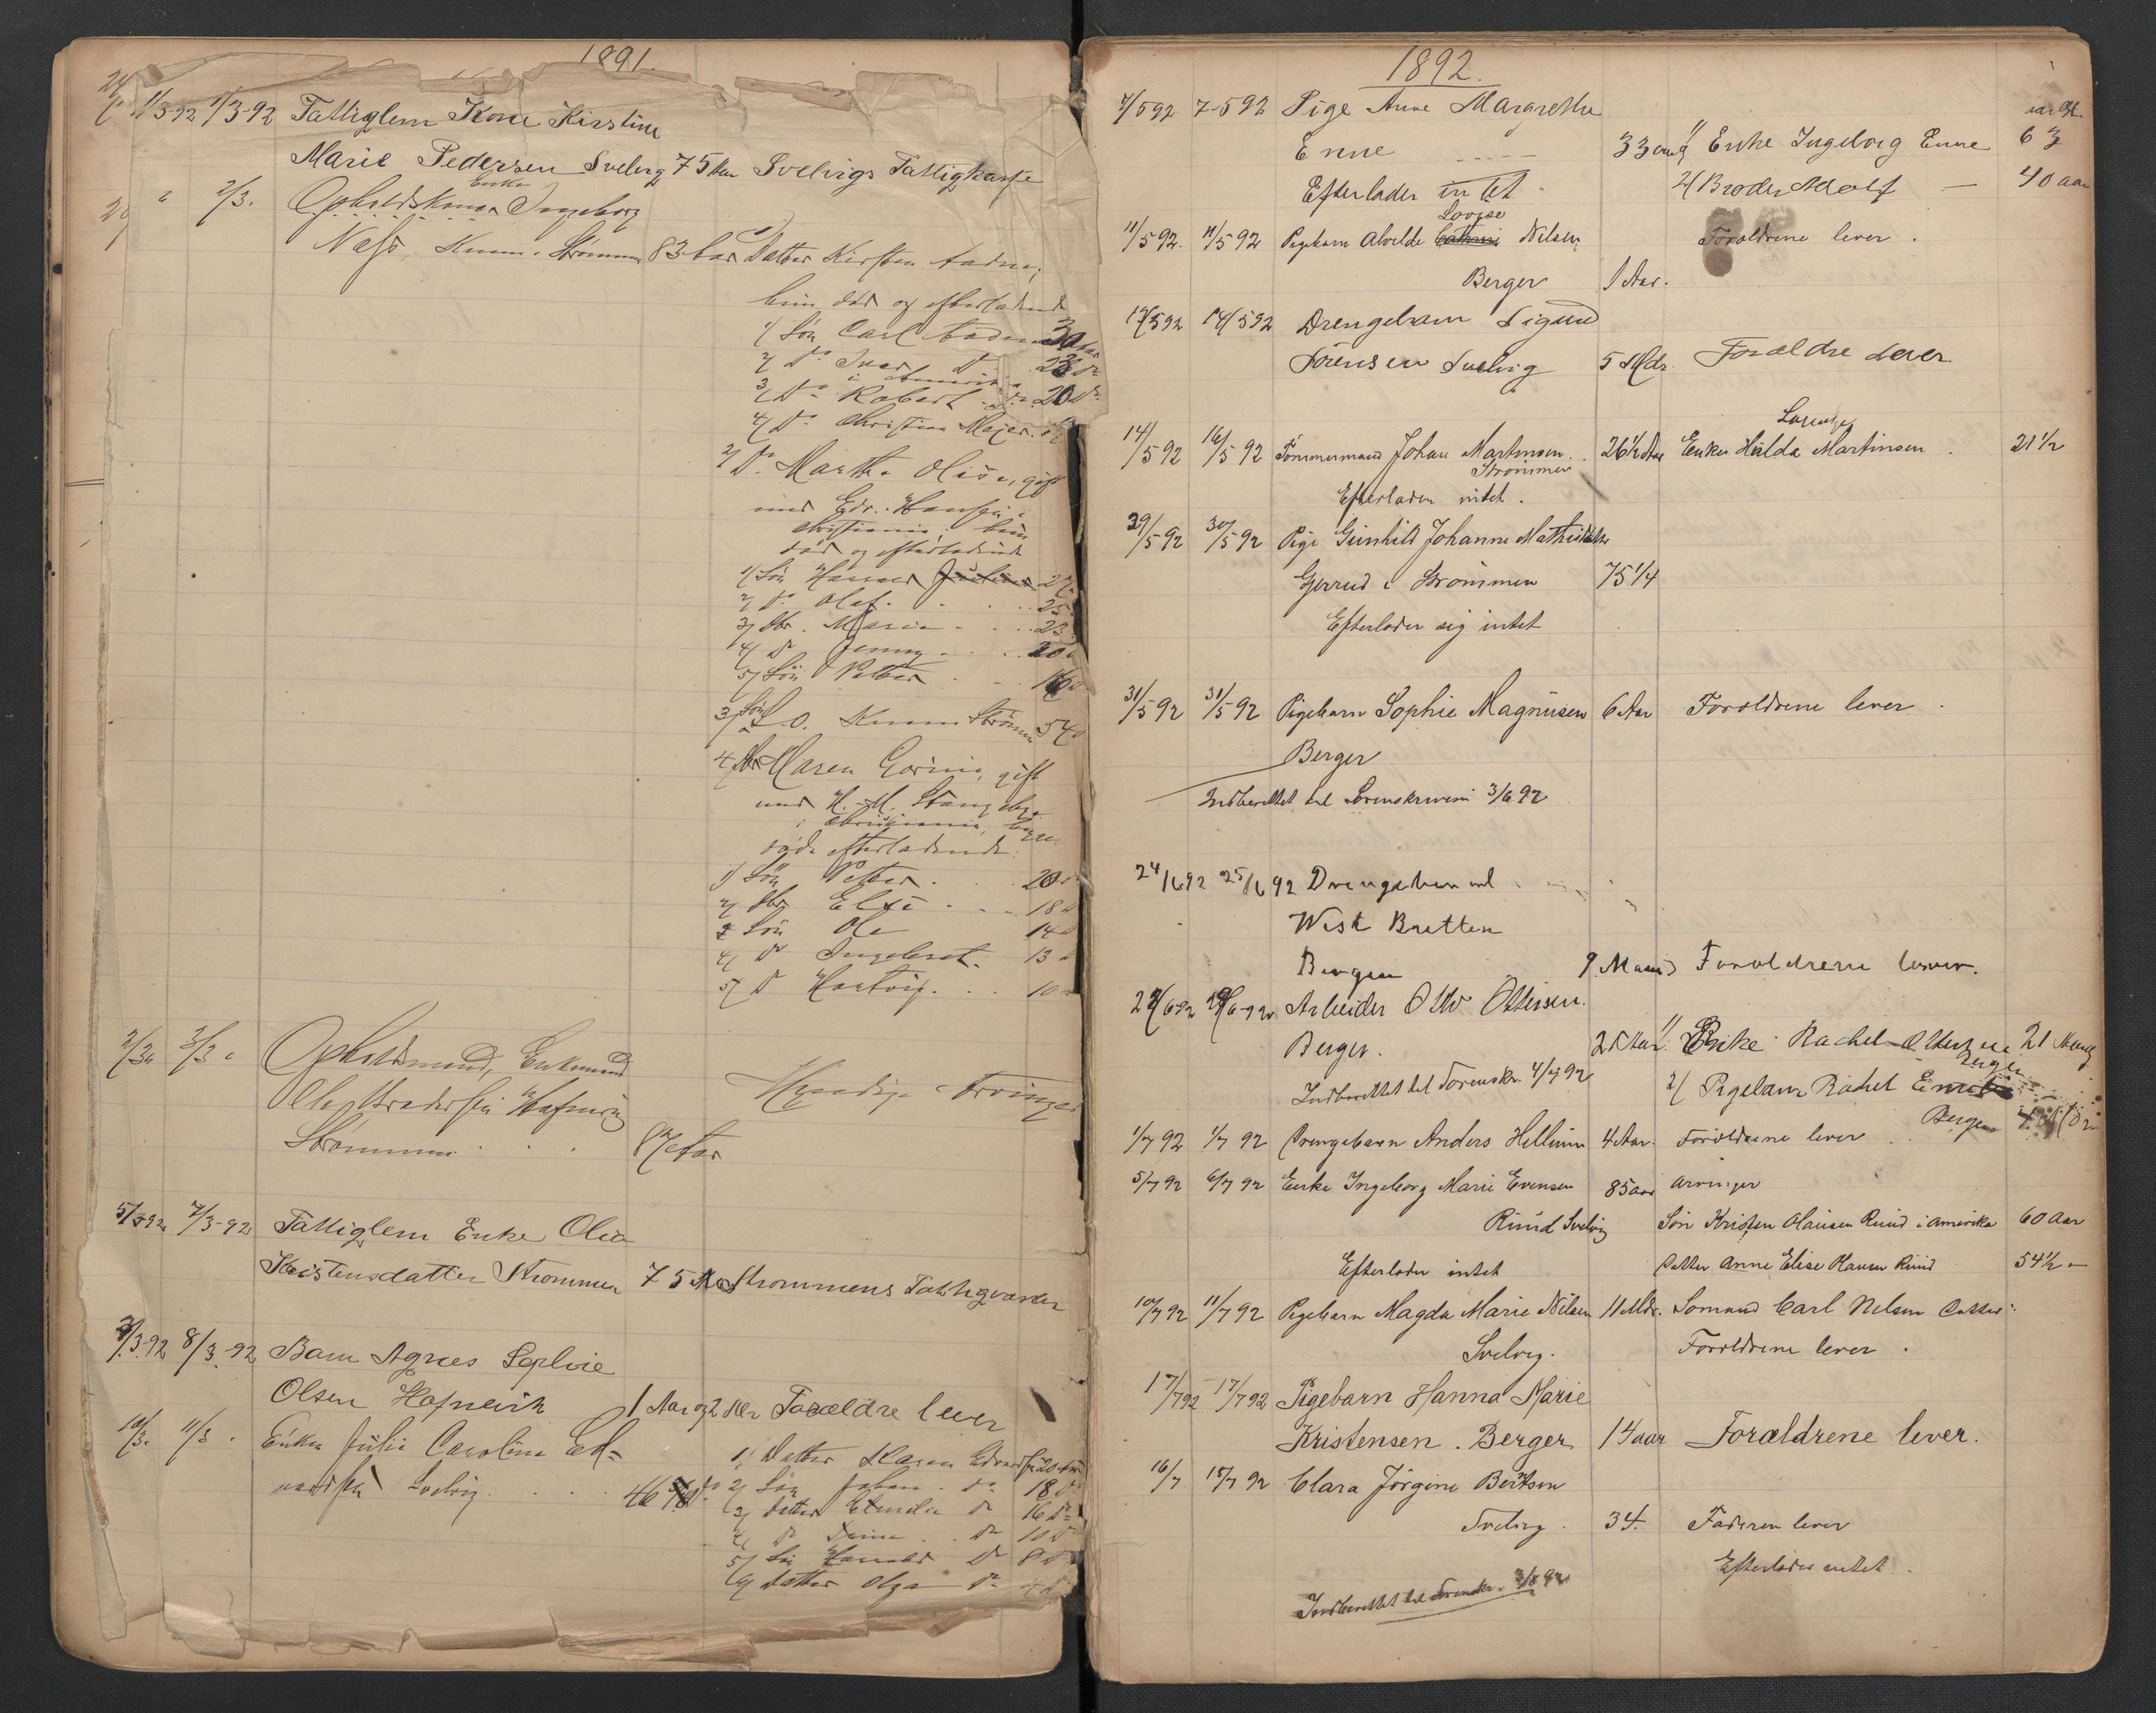 1891.
1/3-92 1/3-92 Fattiglem Kone Kirstine
Marie Pedersen Svelvig 75 Aar Svelvigs Fattigkasse
2/3. Opholdskone Enke Ingeborg
Næss, Strømmen 83 Aar 1) Datter Kirsten
hun død og efterladende
1/ Søn Carl 30 Aar
2/ Do Ivar Do 23 Do
i Amerika
3/ Do Robert Do 20 Do
4/ Do Christian Mejer
2/ Do Marthe Olise, gift
med Edv. Hansen i
Christiania, hun
død og efterladende
1/ Søn Harald 27
2/ Do Olaf 25
3/ Dtr. Marie 23
4/ D Jenny 20
5/ Søn Petter 16
3/ Søn L. O. Strømmen 54
4 Dtr Maren Gorine, gift
med H. M. Stang
i Christiania, begge
døde efterladende
1) Søn Petter 20
2/ Dtr Else 18
3 Søn Ole 14
4/ D Ingebret 13
5/ D Hartvig 10
2/3 3/3 Opholdsmand, Enkemand
Ole Hafnevik
Strømmen 87 Aar Myndige Arvinger
5/3 92 7/3-92 Fattiglem Enke Olia
Kristensdatter Strømmen 75 Aar Strømmens Fattigvæsen
7/3-92 8/3-92 Barn Agnes Sophie
Olsen Hafnevik 1 Aar og 2 Mdr Forældre lever
10/3 11/3 Enken Julie Caroline Ed-
vardsen Svelvig 46 1/ Datter Maren Edvardsen 20 Aar
2/ Søn Johan Do 18 Do
3/ Datter Do 16 Do
4/ D Do 10 D
5/ Søn Harald D 8 D
6/ Datter Olga D
1892.
7/5 92 7-5 92 Pige Anne Margrethe
Enne 33 1/ Enke Ingeborg Enne 63
Efterlader intet 2/ Broder Adolf — 40 aar
11/5 92. 11/5 92 Pigebarn Alvilde Lovise Nilsen Forældrene lever.
Berger 1 Aar.
12/5 92 14/5 92 Drengebarn Sigurd
Sørensen Svelvig 5 Mdr. Forældre lever
14/5 92 16/5 92 Tømmermand Johan Martinsen 26½ Aar Enke Hilda Lorentze Martinsen 21½
Strømmen
Efterlader intet.
29/5 92 30/5 92 Pige Gunhild Johanne Mathisdatter
Gjerud i Strømmen 75¼
Efterlader sig intet
31/5 92 31/5 92 Pigebarn Sophie Magnusen 6 Aar Forældrene lever.
Berger
Indberettet til Sorenskriveren 3/6 92
24/6 92 25/6 92 Drengebarn
West Bretten
Berger 9 Maand Forældrene lever.
29/6-92 Arbeider Otto Ottersen
Berger. 25 Aar 1/ Enke Rachel Ottersen 21
Berger
Indberettet til Sorenskr. 4/7 92 2/ Pigebarn Rachel
Berger
1/7 92 1/7 92 Drengebarn Anders Hellum 4 Aar. Forældrene lever.
5/7 92 6/7 92 Enke Ingeborg Marie Evensen 85 aar Arvinger
Ruud Svelvig Søn Kristen Olausen Ruud i Amerika 60 Aar
Efterlader intet Datter Anne Elise Hansen Ruud 54½ —
10/7 92 11/7 92 Pigebarn Magda Marie Nilsen 11 Mdr. Sømand Carl Nelsen Datter
Svelvig. Forældrene lever.
17/7 92 17/7 92 Pigebarn Hanna Marie
Kristensen. Berger 14 aar Forældrene lever.
16/7 18/7 92 Clara Jørgine Bertsen
Svelvig 34. Faderen lever
Efterlader intet.
Indberettet til Sorenskr. 3/8 92